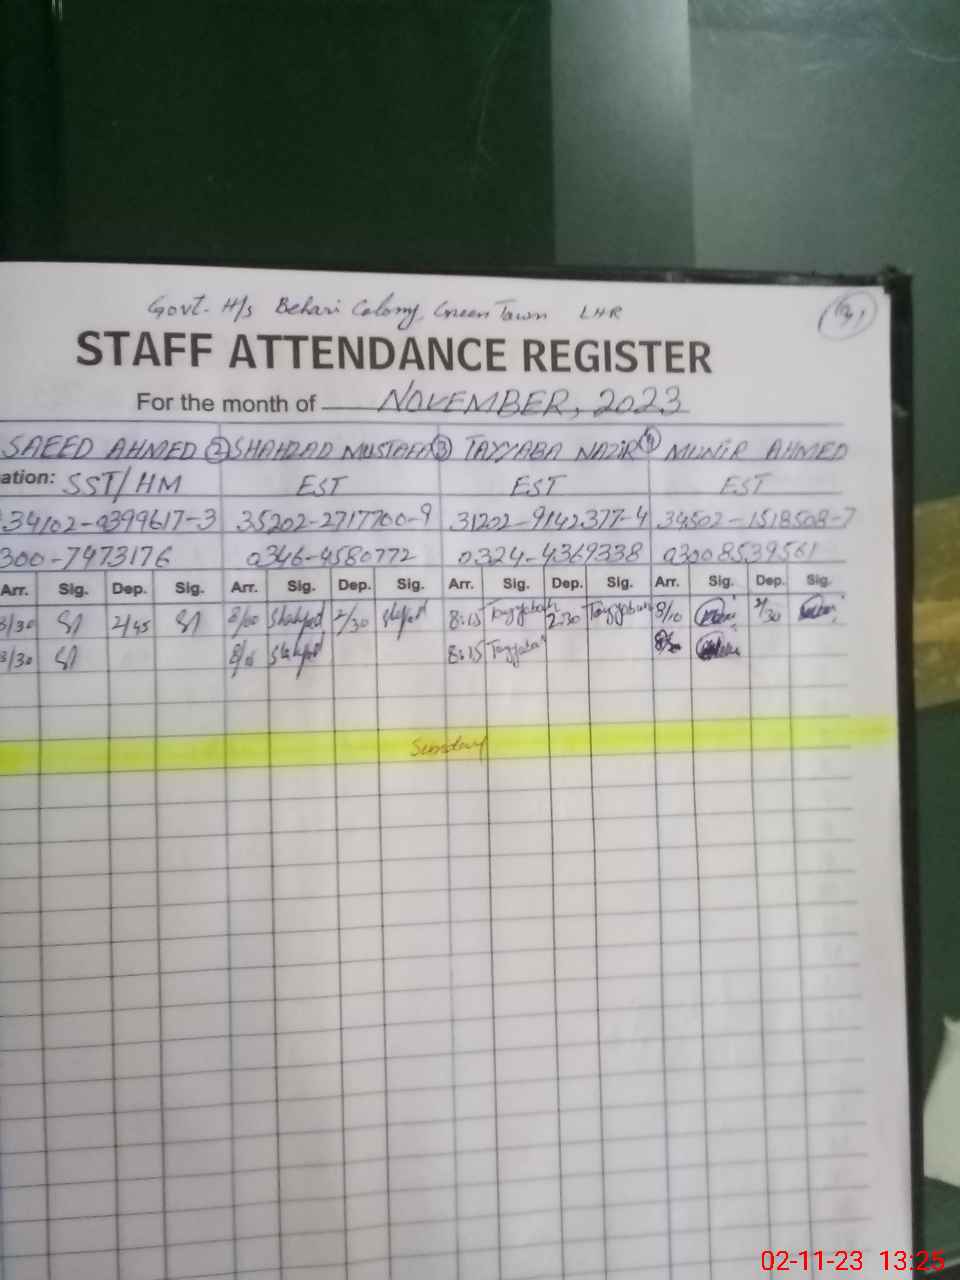 Govt. H/s Behari Colony Green Town LHR
STAFF ATTENDANCE REGISTER
For the month of NOVEMBER, 2023
SAEED AHMED ② SHAHZAD MUSTAFA ③ TAYYABA NAZIR ④ MUNIR AHMED
ation: SST/HM EST EST EST
34102-0399617-3 35202-2717700-9 31202-9142377-4 34502-1518508-7
300-7473176 0346-4580772 0324-4369338 03008539561
Arr. Sig. Dep. Sig. Arr. Sig. Dep. Sig. Arr. Sig. Dep. Sig. Arr. Sig. Dep. Sig.
8/30 2/45 8/00 2/30 8:15 Tayyaba 2:30 Tayyaba 8/10 2/30
8/30 8:15 Tayyaba
Sunday
02-11-23 13:25